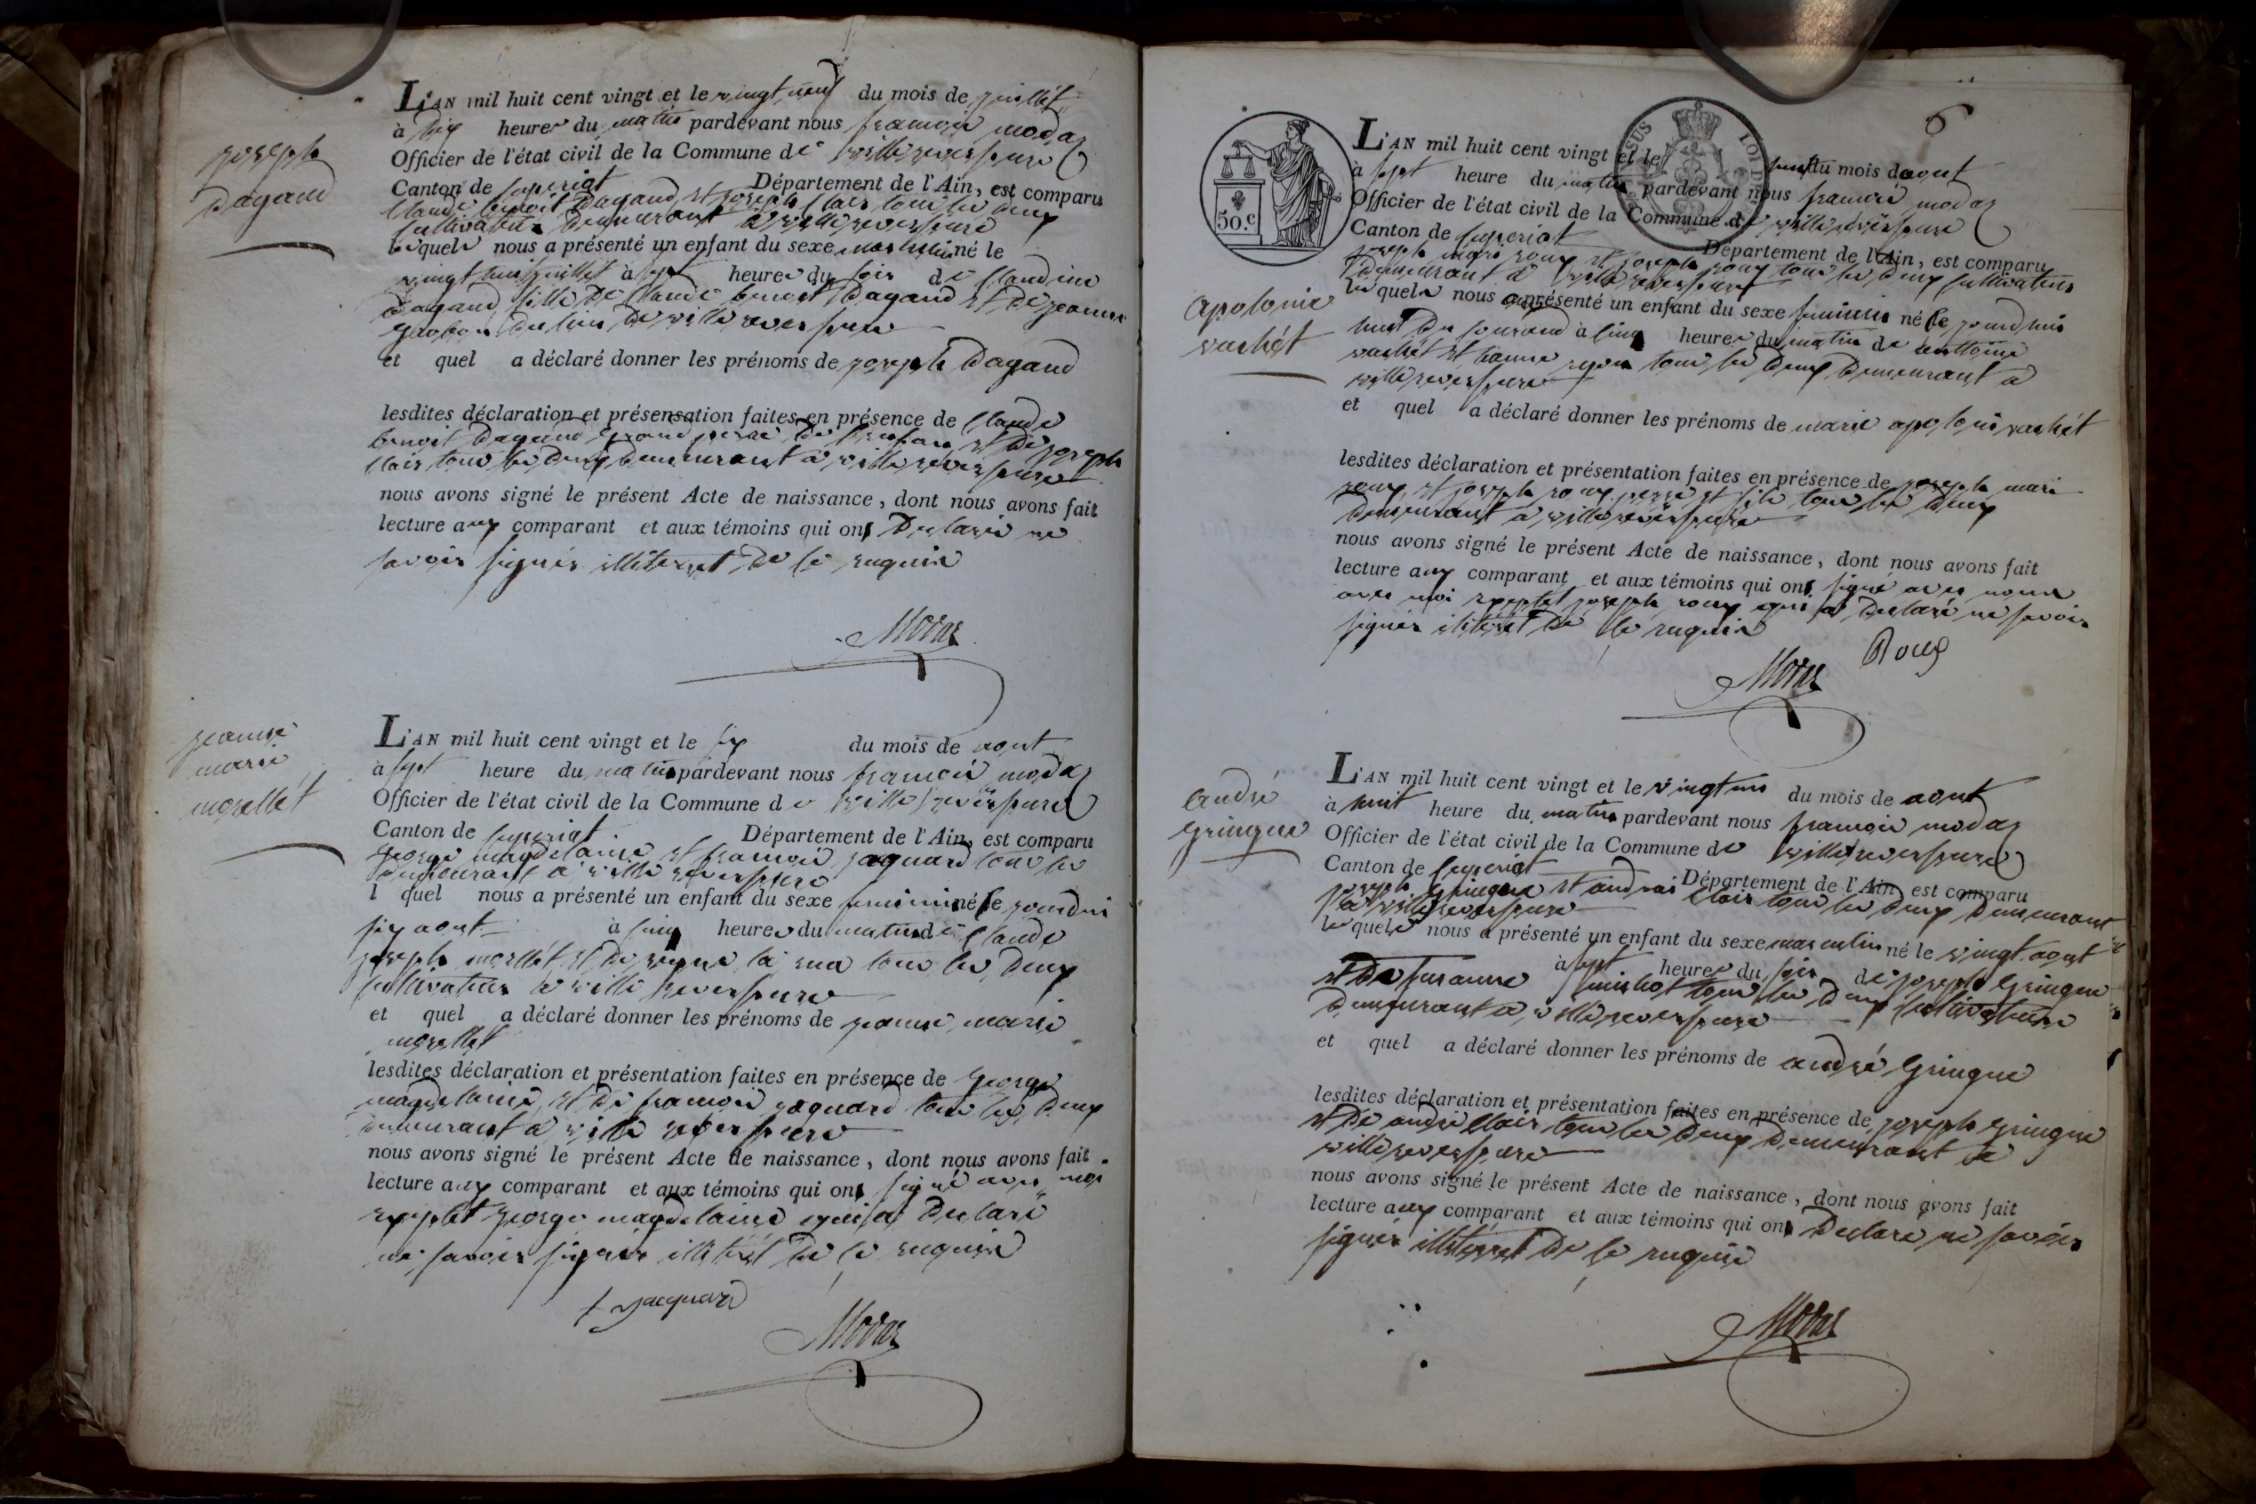 joseph
Dagand
L'AN mil huit cent vingt et le vingt neuf du mois de juillet
à dix heures du matin pardevant nous francois modas
Officier de l'état civil de la Commune de villereversure
Canton de Ceyseriat Département de l'Ain, est comparu
Claude benoit Dagand et joseph Clair tous les deux
Cultivateur demeurant a villereversure
lesquels nous a présenté un enfant du sexe masculin né le
vingt huit juillet à sept heures du soir de Claudine
Dagand fille de Claude benoit Dagand et de jeanne
du lieu de villereversure
et quel a déclaré donner les prénoms de joseph Dagand
lesdites déclaration et présensation faites en présence de Claude
benoit Dagand grand perre de et de joseph
Clair tous les deux demeurant a villereversure
nous avons signé le présent Acte de naissance, dont nous avons fait
lecture aux comparant et aux témoins qui ont Declaré ne
savoir signer illiterret de ce requis
Modas
jeanne
marie
morellet
L'AN mil huit cent vingt et le six du mois de aout
à sept heure du matin pardevant nous francois modas
Officier de l'état civil de la Commune de villereversure
Canton de Ceyseriat Département de l'Ain, est comparu
george magdelaine et francois jaquard tous les
demeurant a villereversure
l quel nous a présenté un enfant du sexe feminin né le jourdui
six aout à cinq heures du matin de Claude
joseph morellet et de la tous les deux
Cultivateur a villereversure
et quel a déclaré donner les prénoms de jeanne marie
morellet
lesdites déclaration et présentation faites en présence de george
magdelaine et de francois jaquard tous les deux
demeurant a villereversure
nous avons signé le présent Acte de naissance, dont nous avons fait
lecture aux comparant et aux témoins qui ont signé avec moi
exeptet george magdelaine qui a Declaré
ne savoir signer illiterét de ce requis
f jacquard
Modas
6
50.c
SUS LOI D
apolonie
vachét
L'AN mil huit cent vingt et le huit du mois daout
à sept heure du matin pardevant nous francois modas
Officier de l'état civil de la Commune de villereversure
Canton de Ceyseriat Département de l'Ain, est comparu
joseph mari roux et joseph roux tous les deux Cultivateur
demeurant a villereversure
lesquels nous a présenté un enfant du sexe feminin né le jourdhui
huit du courand à cinq heures du matin de anttoine
vachét et tous les deux demeurant a
villereversure
et quel a déclaré donner les prénoms de marie apolonie vachét
lesdites déclaration et présentation faites en présence de joseph mari
roux et joseph roux perre et fils tous les deux
demeurant a villereversure
nous avons signé le présent Acte de naissance, dont nous avons fait
lecture aux comparant et aux témoins qui ont signé avec nous
avec moi exeptet joseph roux qui a Declaré ne savoir
signer de ce requis
Roux
Modas
andré
gringue
L'AN mil huit cent vingt et le vingt un du mois de aout
à huit heure du matin pardevant nous francois modas
Officier de l'état civil de la Commune de villereversure
Canton de Ceyseriat Département de l'Ain, est comparu
joseph gringue et andrai Clair tous les deux demeurant
a villereversure
lesquels nous a présenté un enfant du sexe masculin né le vingt aout
à sept heures du soir de joseph gringue
et de susanne tous les deux Cultivateur
demeurant a villereversure
et quel a déclaré donner les prénoms de andré gringue
lesdites déclaration et présentation faites en présence de joseph gringue
et de andré Clair tous les deux demeurant a
villereversure
nous avons signé le présent Acte de naissance, dont nous avons fait
lecture aux comparant et aux témoins qui ont Declaré ne savoir
signer illiterret de ce requis
Modas